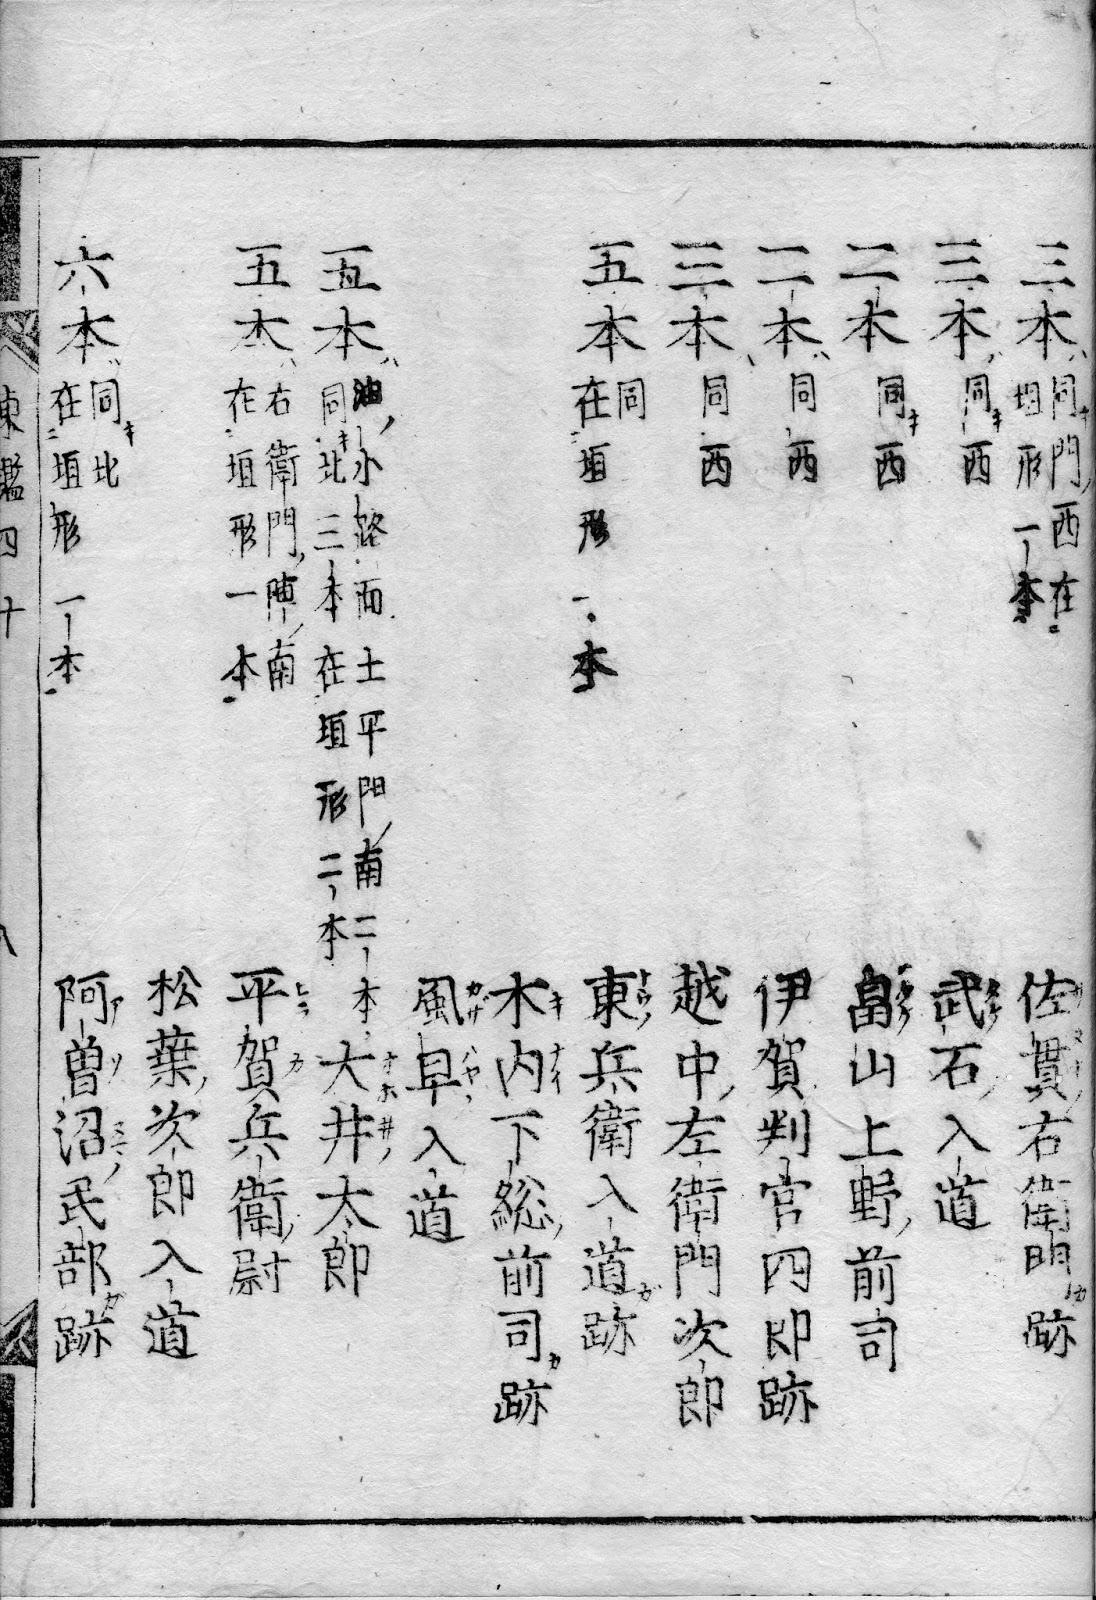 三本 同門西在垣形一本 佐貫右衛明跡
三本 同西 武石入道
二本 同西 畠山上野前司
二本 同西 伊賀判官四郎跡
三本 同西 越中左衛門次郎
五本 同在垣形一本 東兵衛入道跡
木内下総前司跡
風早入道
五本 油小路面土平門南二本同北三本在垣形二本 大井太郎
五本 右衛門陣南在垣形一本 平賀兵衛尉
松葉次郎入道
六本 同北在垣形一本 阿曽沼民部跡
東鑑四十